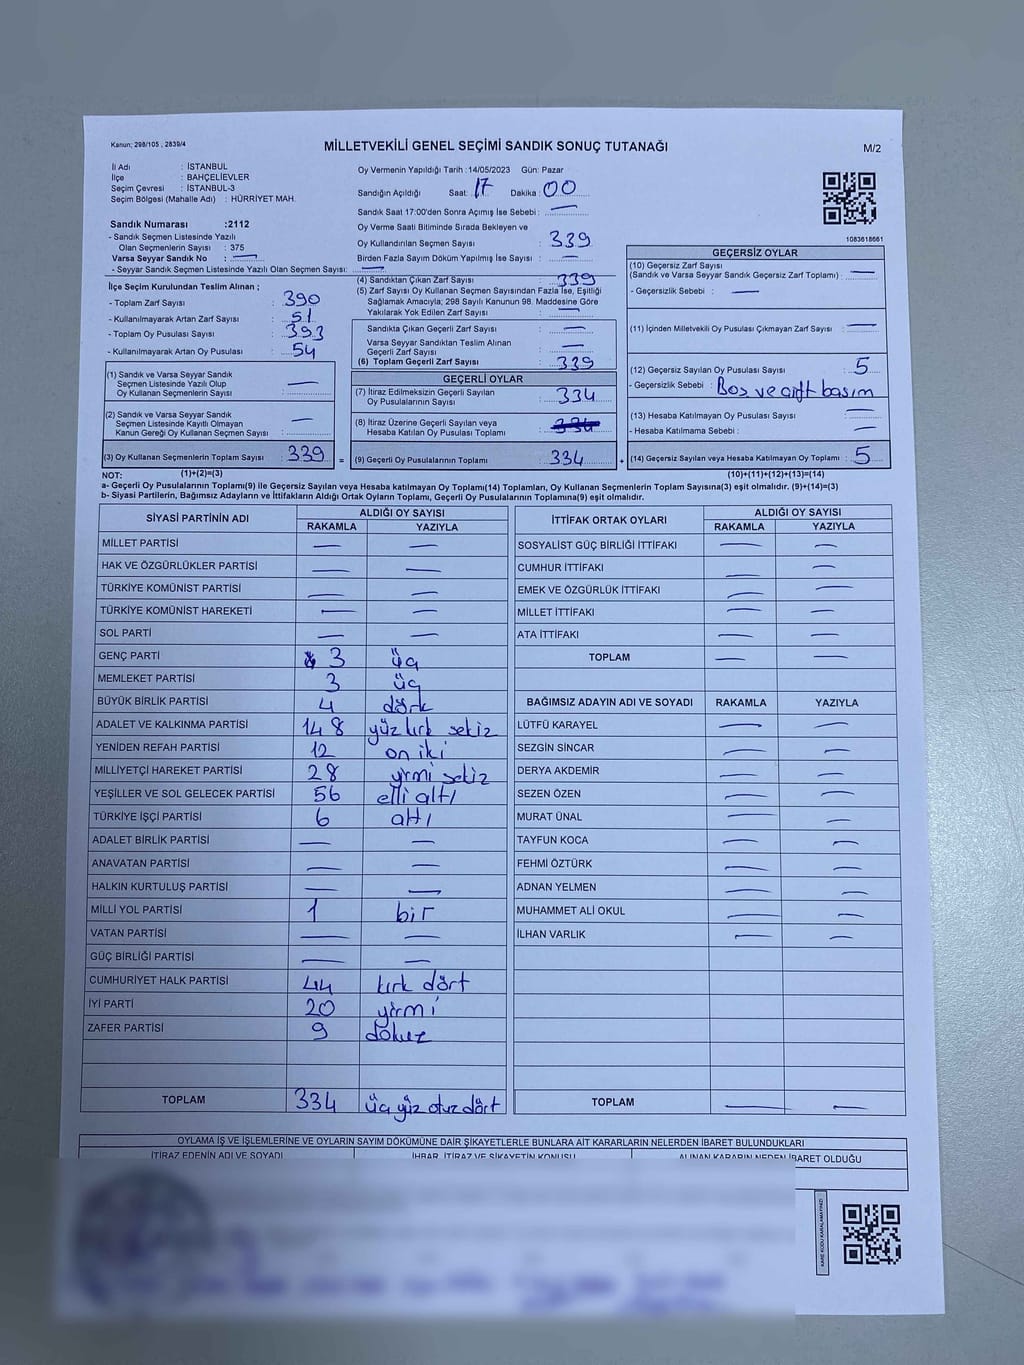 Kanun; 298/105 , 2839/4
MİLLETVEKİLİ GENEL SEÇİMİ SANDIK SONUÇ TUTANAĞI
M/2
İl Adı : İSTANBUL
İlçe : BAHÇELİEVLER
Seçim Çevresi : İSTANBUL-3
Seçim Bölgesi (Mahalle Adı) : HÜRRİYET MAH.
Sandık Numarası :2112
- Sandık Seçmen Listesinde Yazılı
Olan Seçmenlerin Sayısı : 375
Varsa Seyyar Sandık No : —
- Seyyar Sandık Seçmen Listesinde Yazılı Olan Seçmen Sayısı: —
İlçe Seçim Kurulundan Teslim Alınan ;
- Toplam Zarf Sayısı : 390
- Kullanılmayarak Artan Zarf Sayısı : 51
- Toplam Oy Pusulası Sayısı : 393
- Kullanılmayarak Artan Oy Pusulası : 54
(1) Sandık ve Varsa Seyyar Sandık
Seçmen Listesinde Yazılı Olup
Oy Kullanan Seçmenlerin Sayısı : —
(2) Sandık ve Varsa Seyyar Sandık
Seçmen Listesinde Kayıtlı Olmayan
Kanun Gereği Oy Kullanan Seçmen Sayısı : —
(3) Oy Kullanan Seçmenlerin Toplam Sayısı : 339
(1)+(2)=(3)
Oy Vermenin Yapıldığı Tarih :14/05/2023 Gün: Pazar
Sandığın Açıldığı Saat: 17 Dakika : 00
Sandık Saat 17:00'den Sonra Açımış İse Sebebi : —
Oy Verme Saati Bitiminde Sırada Bekleyen ve
Oy Kullandırılan Seçmen Sayısı : 339
Birden Fazla Sayım Döküm Yapılmış İse Sayısı : —
(4) Sandıktan Çıkan Zarf Sayısı : 339
(5) Zarf Sayısı Oy Kullanan Seçmen Sayısından Fazla İse, Eşitliği
Sağlamak Amacıyla; 298 Sayılı Kanunun 98. Maddesine Göre
Yakılarak Yok Edilen Zarf Sayısı : —
Sandıkta Çıkan Geçerli Zarf Sayısı : —
Varsa Seyyar Sandıktan Teslim Alınan
Geçerli Zarf Sayısı : —
(6) Toplam Geçerli Zarf Sayısı : 339
GEÇERLİ OYLAR
(7) İtiraz Edilmeksizin Geçerli Sayılan
Oy Pusulalarının Sayısı : 334
(8) İtiraz Üzerine Geçerli Sayılan veya
Hesaba Katılan Oy Pusulası Toplamı :
= (9) Geçerli Oy Pusulalarının Toplamı : 334
1083618661
GEÇERSİZ OYLAR
(10) Geçersiz Zarf Sayısı
(Sandık ve Varsa Seyyar Sandık Geçersiz Zarf Toplamı) : —
- Geçersizlik Sebebi : —
(11) İçinden Milletvekili Oy Pusulası Çıkmayan Zarf Sayısı : —
(12) Geçersiz Sayılan Oy Pusulası Sayısı : 5
- Geçersizlik Sebebi : Boş ve çift basım
(13) Hesaba Katılmayan Oy Pusulası Sayısı : —
- Hesaba Katılmama Sebebi : —
+ (14) Geçersiz Sayılan veya Hesaba Katılmayan Oy Toplamı : 5
(10)+(11)+(12)+(13)=(14)
NOT:
a- Geçerli Oy Pusulalarının Toplamı(9) ile Geçersiz Sayılan veya Hesaba Katılmayan Oy Toplamı(14) Toplamları, Oy Kullanan Seçmenlerin Toplam Sayısına(3) eşit olmalıdır. (9)+(14)=(3)
b- Siyasi Partilerin, Bağımsız Adayların ve İttifakların Aldığı Ortak Oyların Toplamı, Geçerli Oy Pusulalarının Toplamına(9) eşit olmalıdır.
SİYASİ PARTİNİN ADI ALDIĞI OY SAYISI
RAKAMLA YAZIYLA
MİLLET PARTİSİ — —
HAK VE ÖZGÜRLÜKLER PARTİSİ — —
TÜRKİYE KOMÜNİST PARTİSİ — —
TÜRKİYE KOMÜNİST HAREKETİ — —
SOL PARTİ — —
GENÇ PARTİ 3 üç
MEMLEKET PARTİSİ 3 üç
BÜYÜK BİRLİK PARTİSİ 4 dört
ADALET VE KALKINMA PARTİSİ 148 yüz kırk sekiz
YENİDEN REFAH PARTİSİ 12 on iki
MİLLİYETÇİ HAREKET PARTİSİ 28 yirmi sekiz
YEŞİLLER VE SOL GELECEK PARTİSİ 56 elli altı
TÜRKİYE İŞÇİ PARTİSİ 6 altı
ADALET BİRLİK PARTİSİ — —
ANAVATAN PARTİSİ — —
HALKIN KURTULUŞ PARTİSİ — —
MİLLİ YOL PARTİSİ 1 bir
VATAN PARTİSİ — —
GÜÇ BİRLİĞİ PARTİSİ — —
CUMHURİYET HALK PARTİSİ 44 kırk dört
İYİ PARTİ 20 yirmi
ZAFER PARTİSİ 9 dokuz
TOPLAM 334 üç yüz otuz dört
İTTİFAK ORTAK OYLARI ALDIĞI OY SAYISI
RAKAMLA YAZIYLA
SOSYALİST GÜÇ BİRLİĞİ İTTİFAKI — —
CUMHUR İTTİFAKI — —
EMEK VE ÖZGÜRLÜK İTTİFAKI — —
MİLLET İTTİFAKI — —
ATA İTTİFAKI — —
TOPLAM — —
BAĞIMSIZ ADAYIN ADI VE SOYADI RAKAMLA YAZIYLA
LÜTFÜ KARAYEL — —
SEZGİN SİNCAR — —
DERYA AKDEMİR — —
SEZEN ÖZEN — —
MURAT ÜNAL — —
TAYFUN KOCA — —
FEHMİ ÖZTÜRK — —
ADNAN YELMEN — —
MUHAMMET ALİ OKUL — —
İLHAN VARLIK — —
TOPLAM — —
OYLAMA İŞ VE İŞLEMLERİNE VE OYLARIN SAYIM DÖKÜMÜNE DAİR ŞİKAYETLERLE BUNLARA AİT KARARLARIN NELERDEN İBARET BULUNDUKLARI
İTİRAZ EDENİN ADI VE SOYADI İHBAR, İTİRAZ VE ŞİKAYETİN KONUSU ALINAN KARARIN NEDEN İBARET OLDUĞU
KARE KODU KARALAMAYINIZ!